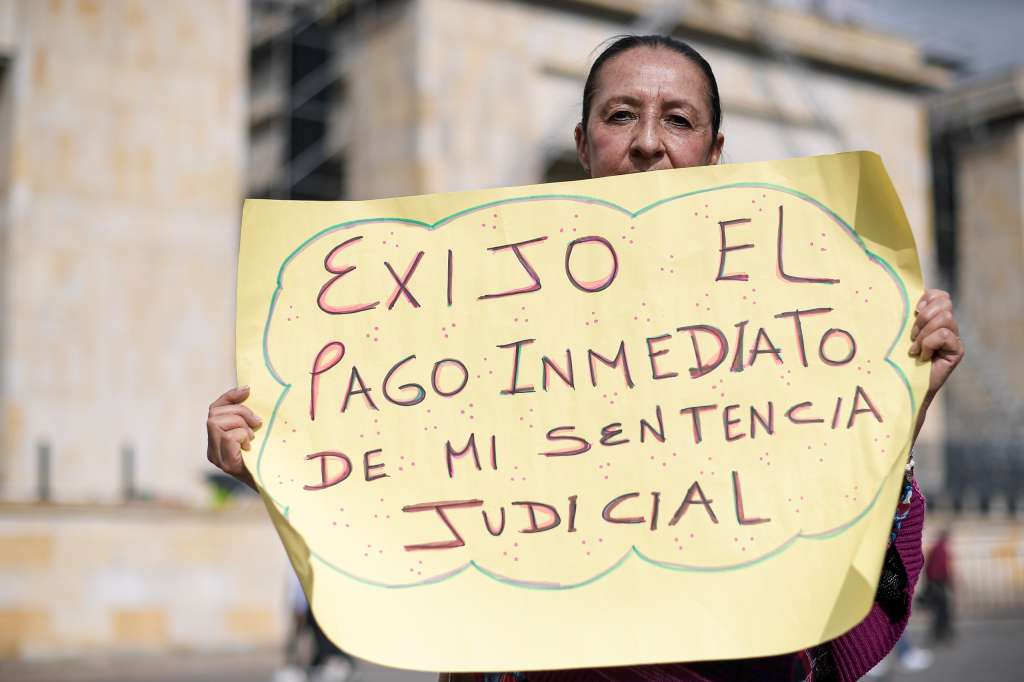 EXIJO EL
PAGO INMEDIATO
DE MI SENTENCIA
JUDICIAL